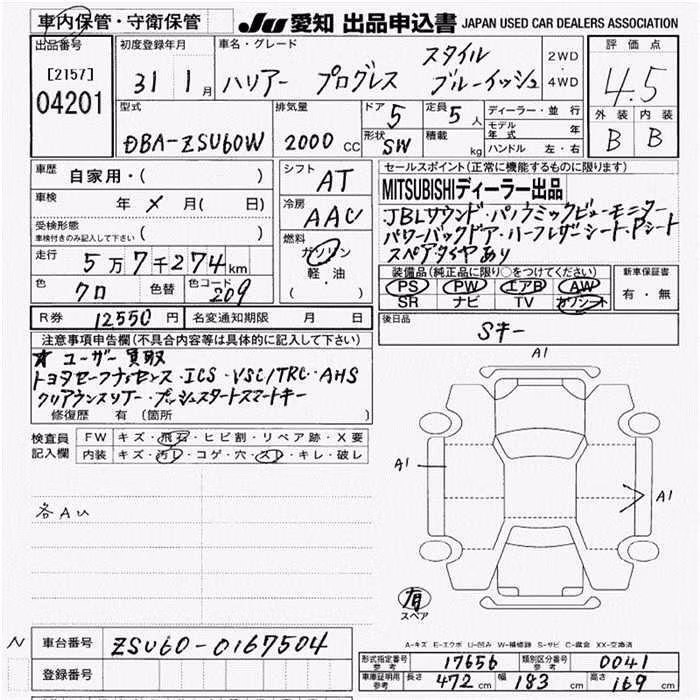 車内保管・守衛保管 JU 愛知 出品申込書 JAPAN USED CAR DEALERS ASSOCIATION
出品番号 初度登録年月 車名・グレード 評価点
[2157] 31 1月 ハリアー プログレス スタイル ブルーイッシュ 2WD・4WD 4.5
04201
外装 内装
B B
型式 排気量 ドア 5 定員 5人 ディーラー・並行
DBA-ZSU60W 2000cc 形状 SW 積載 kg モデル年式 年
ハンドル 左・右
車歴 自家用・( )
車検 年 × 月( 日)
受検形態
車検付きのみ記入して下さい ( )
走行 5万7千274km
色 クロ 色替 色コード 209
シフト AT
冷房 AAC
燃料 ガソリン
軽・油
( )
セールスポイント(正常に機能するものに限ります)
MITSUBISHIディーラー出品
JBLサウンド・パノラミックビューモニター
パワーバックドア・ハーフレザーシート・Pシート
スペアタイヤあり
装備品(純正品に限り○をつけてください) 新車保証書
PS PW エアB AW 有・無
SR ナビ TV カワシート
R券 12550円 名変通知期限 月 日
後日品 Sキー
注意事項申告欄(不具合内容等は具体的に記入して下さい)
★ユーザー買取
トヨタセーフティセンス・ICS・VSC/TRC・AHS
クリアランスソナー・プッシュスタートスマートキー
修復歴 有 (箇所 )
検査員記入欄 FW キズ・飛石・ヒビ割・リペア跡・X要
内装 キズ・汚レ・コゲ・穴・スレ・キレ・破レ
各AU
A1
A1
A1
有
スペア
A-キズ E-エクボ U-凹み W-補修跡 S-サビ C-腐食 XX-交換済
N 車台番号 ZSU60-0167504
登録番号
形式指定番号参考 17656 類別区分番号参考 0041
車庫証明用参考 長さ 472cm 幅 183cm 高さ 169cm